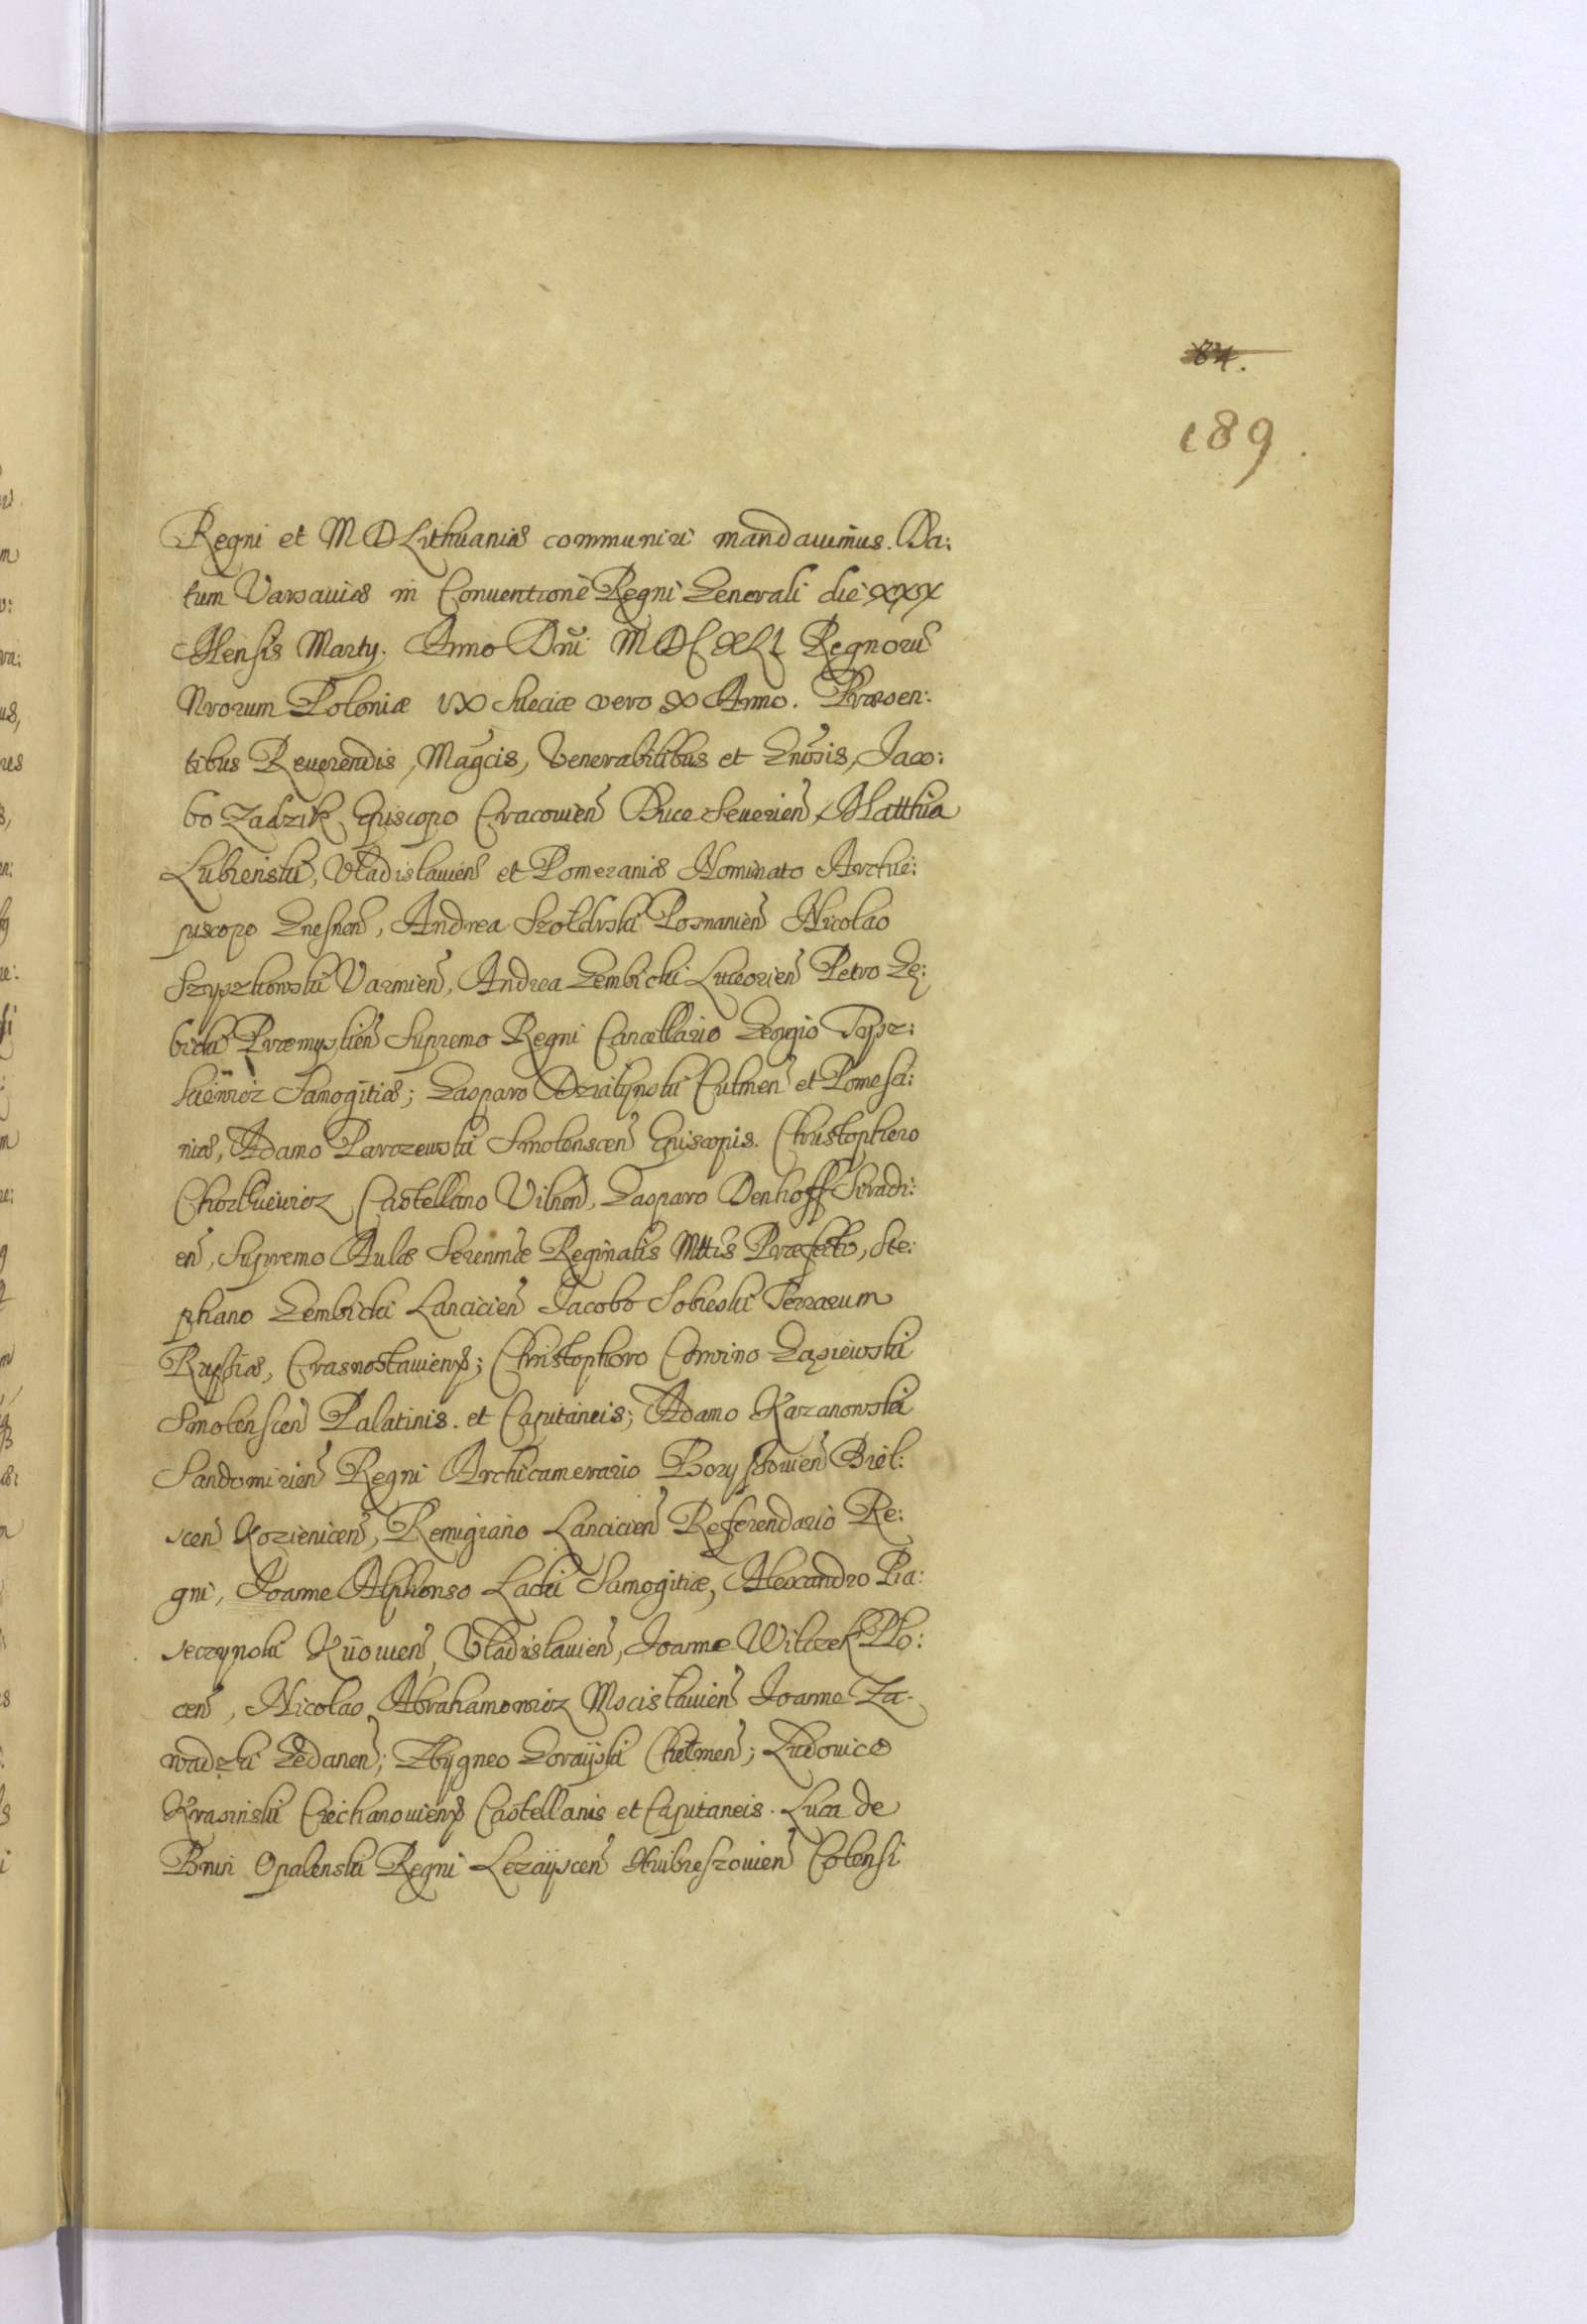 84.
189.
Regni et M D Lithuaniæ communiri mandauimus. Da:
tum Varsauiæ in Conuentione Regni Generali die XXX
Mensis Martij. Anno Dñi MDCXLI Regnorũ
Nrorum Poloniæ IX Sueciæ vero X Anno. Præsen:
tibus Reuerendis, Magcis, Venerabilibus et Gnosis, Jaco:
bo Zadzik Episcopo Cracouien Duce Seuerien, Matthia
Lubienski, Vladislauien et Pomeraniæ Nominato Archie:
piscopo Gnesnen, Andrea Szoldrski Posnanien Nicolao
Szyszkowski Varmien, Andrea Gembicki Luceorien Petro Ge:
bicki Præmyslien Supremo Regni Cancellario Georgio Tysz:
kiewicz Samogitiæ; Gasparo Dzialynski Culmen et Pomesa:
niæ, Adamo Parczewski Smolenscen Episcopis. Christophero
Chodkiewicz Castellano Vilnen, Gasparo Denhoff Siradi:
en, Supremo Aulæ Serenmæ Reginalis Mttis Præfecto, Ste:
phano Gembicki Lancicien Jacobo Sobieski Terrarum
Russiæ, Crasnostauiens; Christophoro Corvino Gąsiewski
Smolenscen Palatinis. et Capitaneis; Adamo Kazanowski
Sandomirien Regni Archicamerario Boryssouien Biel:
scen Kozienicen, Remigiano Lancicien Referendario Re:
gni, Joanne Alphonso Lacki Samogitiæ, Alexandro Pia:
seczynski Kijouien, Vladislauien, Joanne Wilczek Plo:
cen, Nicolao Abrahamowicz Mscislauien Joanne Za-
wadzki Gedanen; Zbygneo Gorayski Chelmen; Ludouico
Krasinski Ciechanouiens Castellanis et Capitaneis. Luca de
Bnin Opalenski Regni Lezayscen Hrubieszouien Colensi